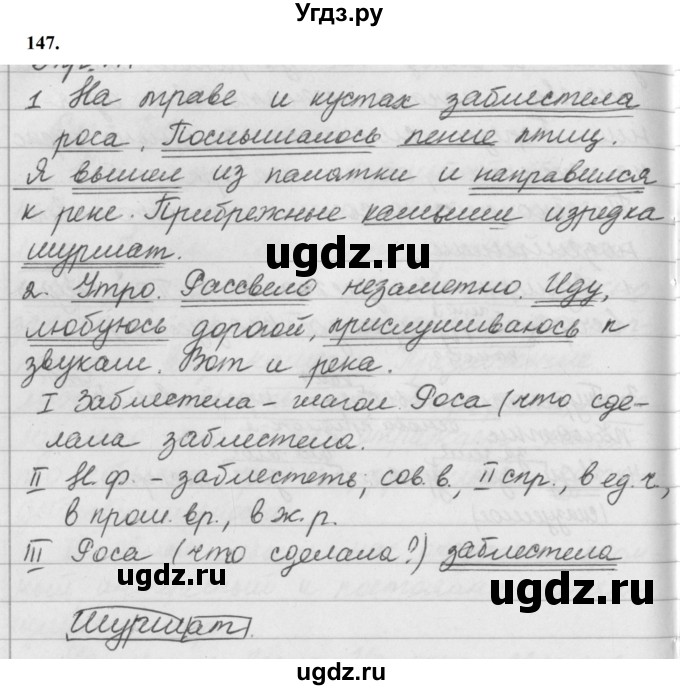 Угдз.ру
147.
1 На траве и кустах заблестела
роса. Послышалось пение птиц.
Я вышел из палатки и направился
к реке. Прибрежные камыши изредка
шуршат.
ugdz.ru
2. Утро. Рассвело незаметно. Иду,
любуюсь дорогой, прислушиваюсь к
звукам. Вот и река.
I Заблестела – глагол. Роса (что сде-
лала заблестела.
II Н.ф. – заблестеть, сов. в, II спр., в ед. ч.,
в прош. вр., в ж. р.
III Роса (что сделала?) заблестела
ugdz.ru
ugdz.ru
Шуршат.
ugdz.ru